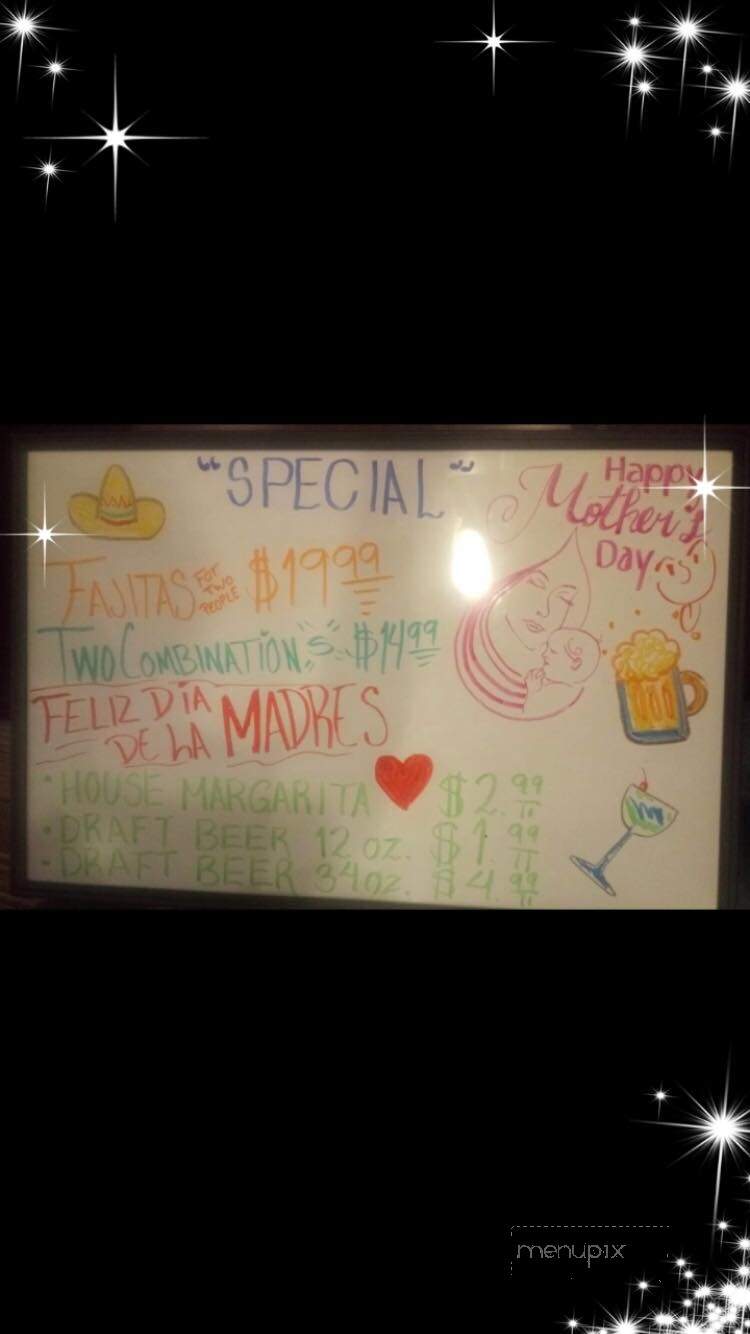 "SPECIAL"
Happy
Mother's
Day
FAJITAS FOR TWO PEOPLE $19.99
TWO COMBINATION'S $14.99
FELIZ DÍA
DE LA MADRES
• HOUSE MARGARITA $2.99
• DRAFT BEER 12 OZ. $1.99
- DRAFT BEER 34 OZ. $4.99
menupix